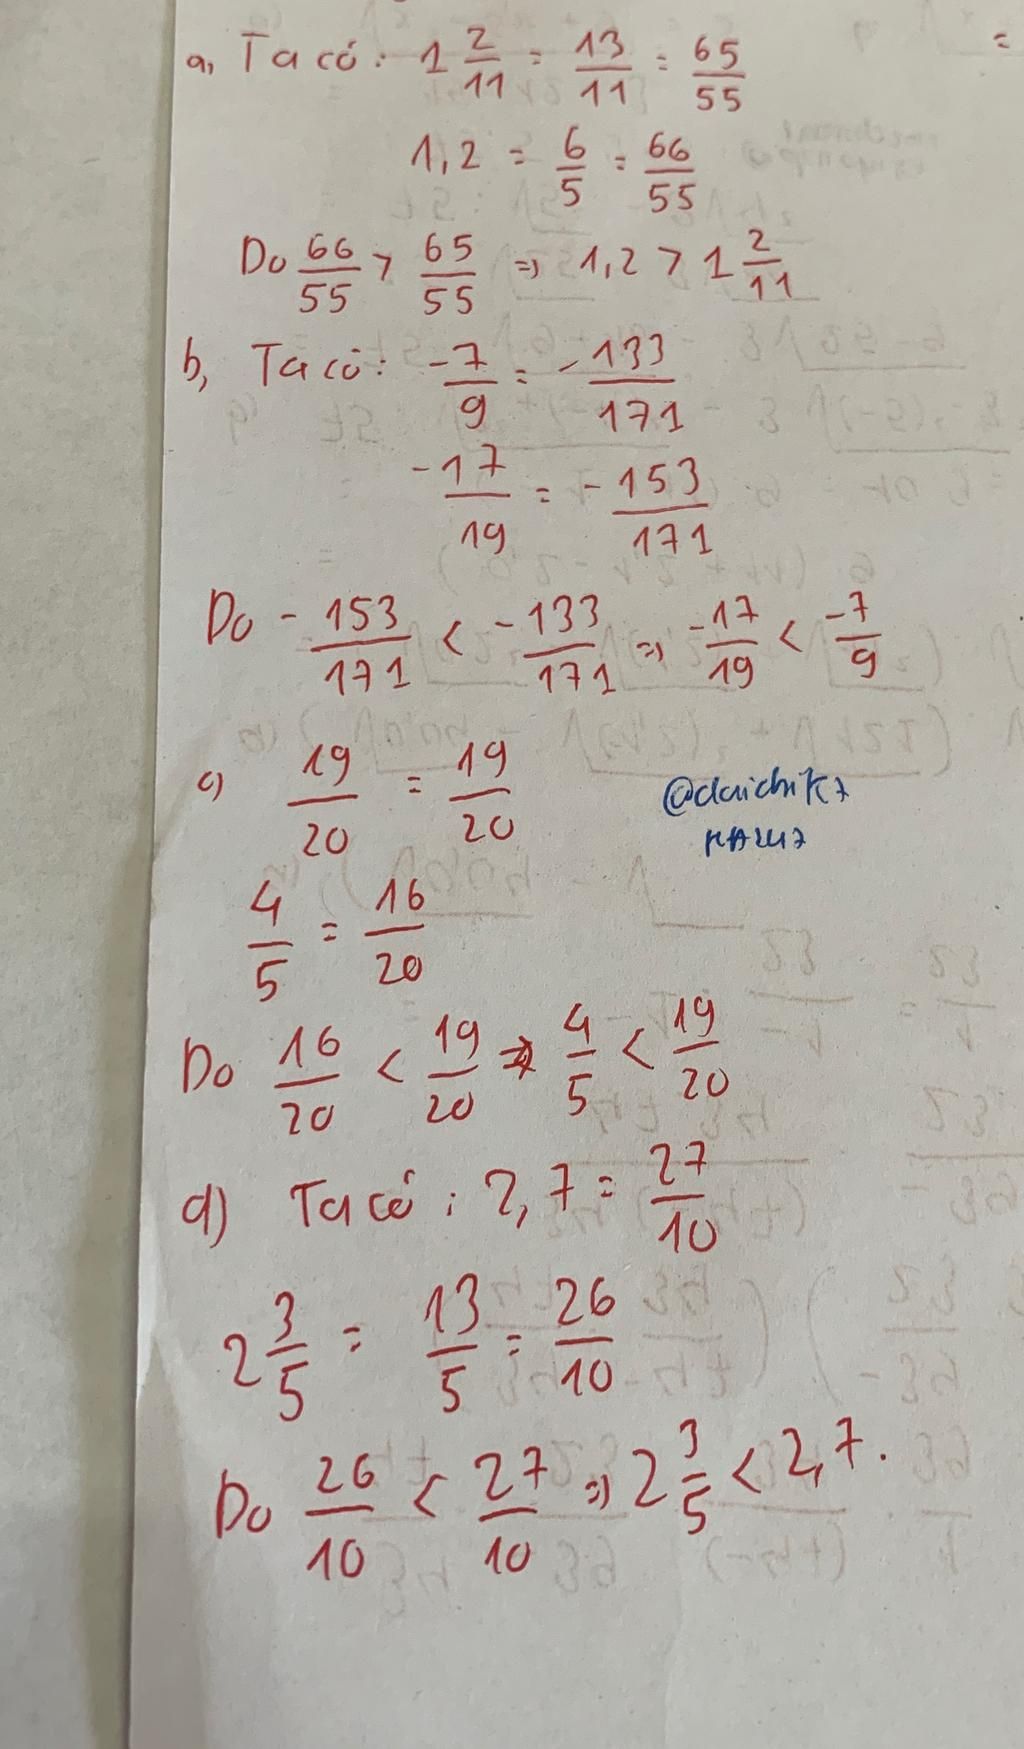 a, Ta có: 1 2/11 = 13/11 = 65/55
1,2 = 6/5 = 66/55
Do 66/55 > 65/55 => 1,2 > 1 2/11
b, Ta có: -7/9 = -133/171
-17/19 = -153/171
Do -153/171 < -133/171 => -17/19 < -7/9
c) 19/20 = 19/20
4/5 = 16/20
Do 16/20 < 19/20 => 4/5 < 19/20
d) Ta có: 2,7 = 27/10
2 3/5 = 13/5 = 26/10
Do 26/10 < 27/10 => 2 3/5 < 2,7.